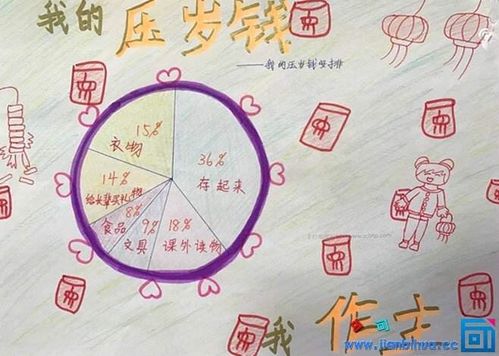 我的压岁钱
——我的压岁钱安排
15%
衣物
36%
存起来
14%
给长辈买礼物
8%
食品
9%
文具
18%
课外读物
我作主
www.jianbihua.cc